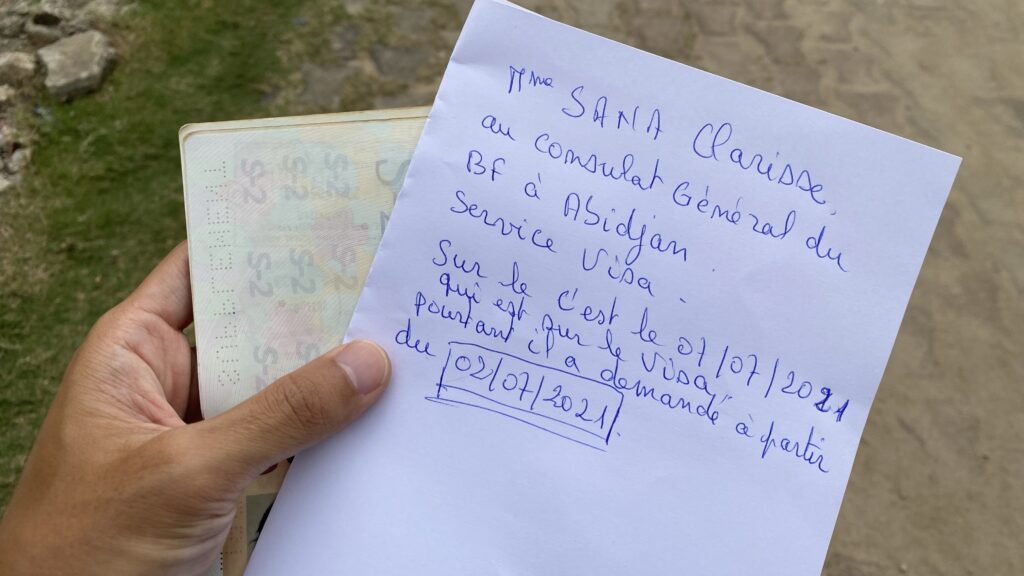 Mme SANA Clarisse,
au consulat Général du
BF à Abidjan.
Service Visa.
Sur le c'est le 07/07/2021
qui est sur le Visa,
pourtant il a demandé à partir
du 02/07/2021.